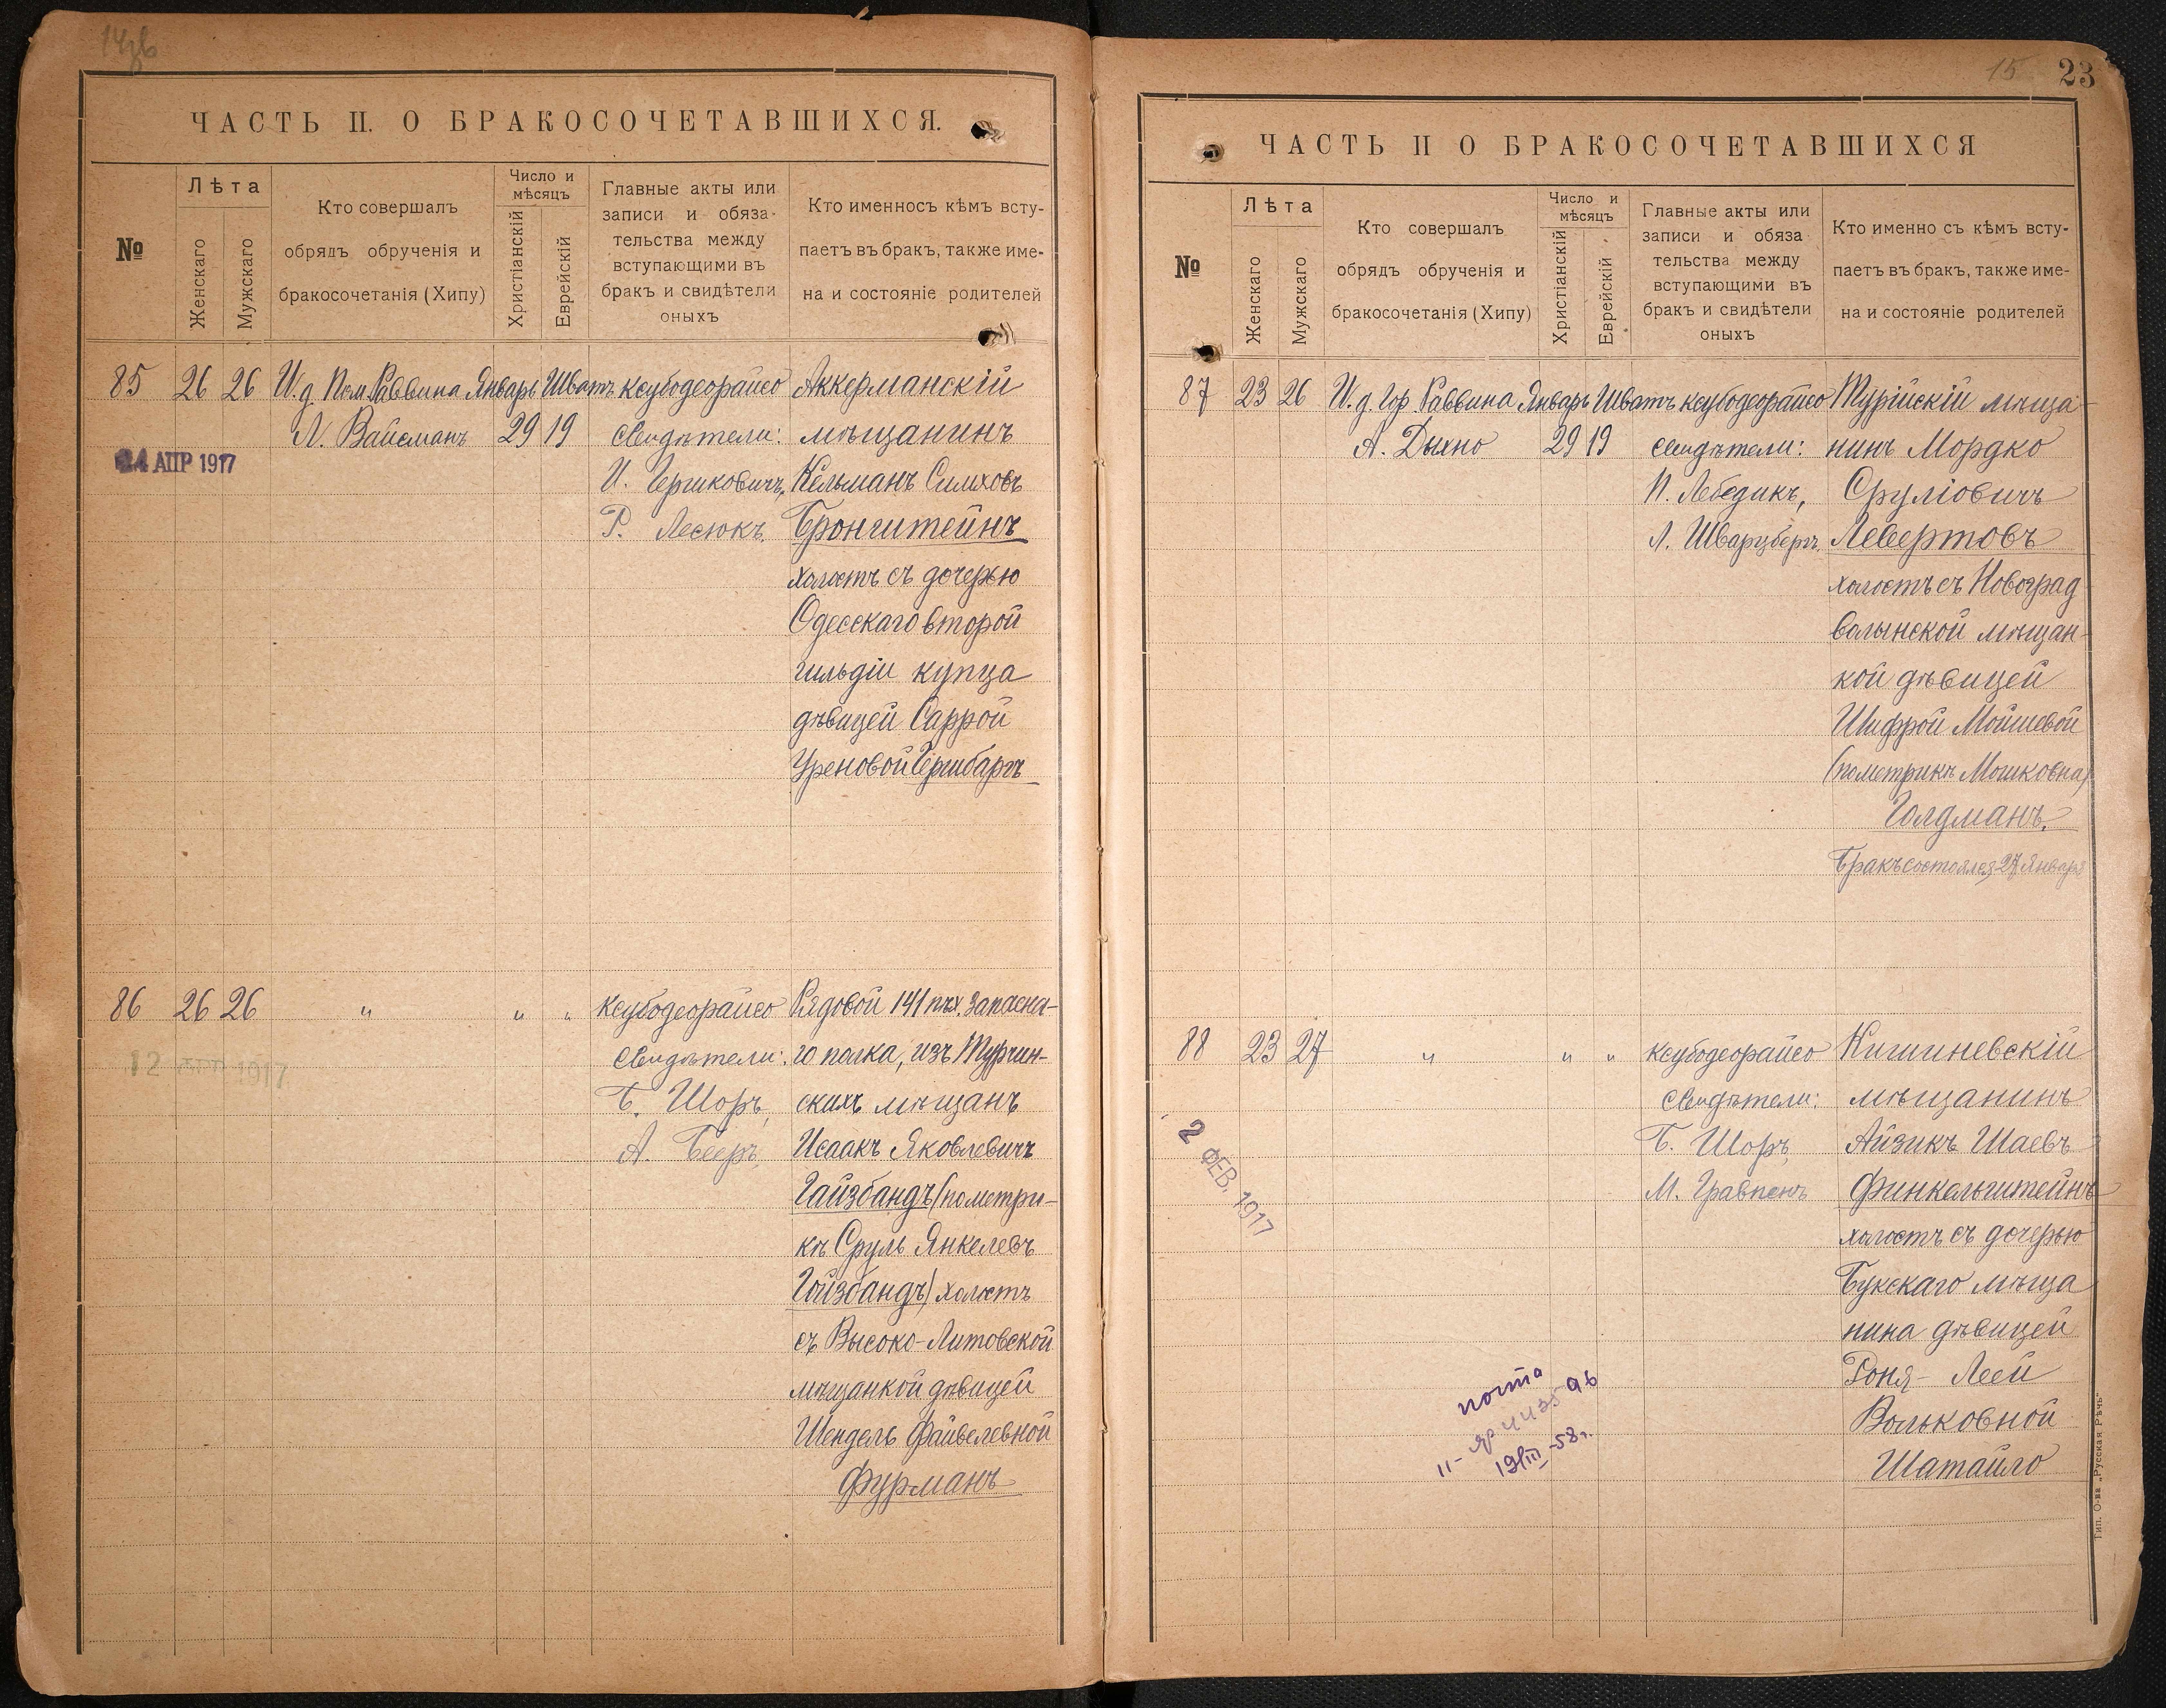 ЧАСТЬ II. О БРАКОСОЧЕТАВШИХСЯ.
№
Лѣта
Женскаго
Мужскаго
Кто совершалъ
обрядъ обрученія и
бракосочетанія (Хипу)
Число и
мѣсяцъ
Христіанскій
Еврейскій
Главные акты или
записи и обяза-
тельства между
вступающими въ
бракъ и свидѣтели
оныхъ
Кто именносъ кѣмъ всту-
паетъ въ бракъ, также име-
на и состояніе родителей
85 26 26 И.д. Пом. Раввина Январь Шватъ ксубодеорайсо
Л. Вайсманъ 29 19 свидѣтели:
И. Гершковичъ,
Р. Лесюкъ.
24 АПР 1917
Аккерманскій
мѣщанинъ
Кельманъ Симховъ
Бронштейнъ
холостъ съ дочерью
Одесскаго второй
гильдіи купца
дѣвицей Саррой
Уреновой Гершбаргъ
86 26 26 " " " ксубодеорайсо
свидѣтели:
Б. Шоръ,
А. Бееръ,
12 1917
Рядовой 141 пѣх. запасна-
го полка, изъ Турчин-
скихъ мѣщанъ
Исаакъ Яковлевичъ
Гайзбандъ (по метри-
кѣ Сруль Янкелевъ
Гойзбандъ) холостъ
съ Высоко-Литовской
мѣщанкой дѣвицей
Шендель Файвелевной
Фурманъ
15 23
ЧАСТЬ II О БРАКОСОЧЕТАВШИХСЯ
№
Лѣта
Женскаго
Мужскаго
Кто совершалъ
обрядъ обрученія и
бракосочетанія (Хипу)
Число и
мѣсяцъ
Христіанскій
Еврейскій
Главные акты или
записи и обяза
тельства между
вступающими въ
бракъ и свидѣтели
оныхъ
Кто именно съ кѣмъ всту-
паетъ въ бракъ, также име-
на и состояніе родителей
87 23 26 И.д. Гор. Раввина Январь Шватъ ксубодеорайсо
А. Дыхно 29 19 свидѣтели:
П. Лебедикъ,
Л. Шварцбергъ.
Турійскій мѣща-
нинъ Мордко
Сруліовичъ
Левертовъ
холостъ съ Новоград
волынской мѣщан-
кой дѣвицей
Шифрой Мойшевой
(по метрикѣ Мошковна)
Голдманъ.
Бракъ состоялся 27 Января
88 23 27 " " " ксубодеорайсо
свидѣтели:
Б. Шоръ,
М. Гравпенъ
2 ФЕВ. 1917
Кишиневскій
мѣщанинъ
Айзикъ Шаевъ
Финкельштейнъ
холостъ съ дочерью
Букскаго мѣща
нина дѣвицей
Роня-Леей
Вольковной
Шатайло
почта
19/III-58г.
Тип. О-ва „Русская Рѣчь“